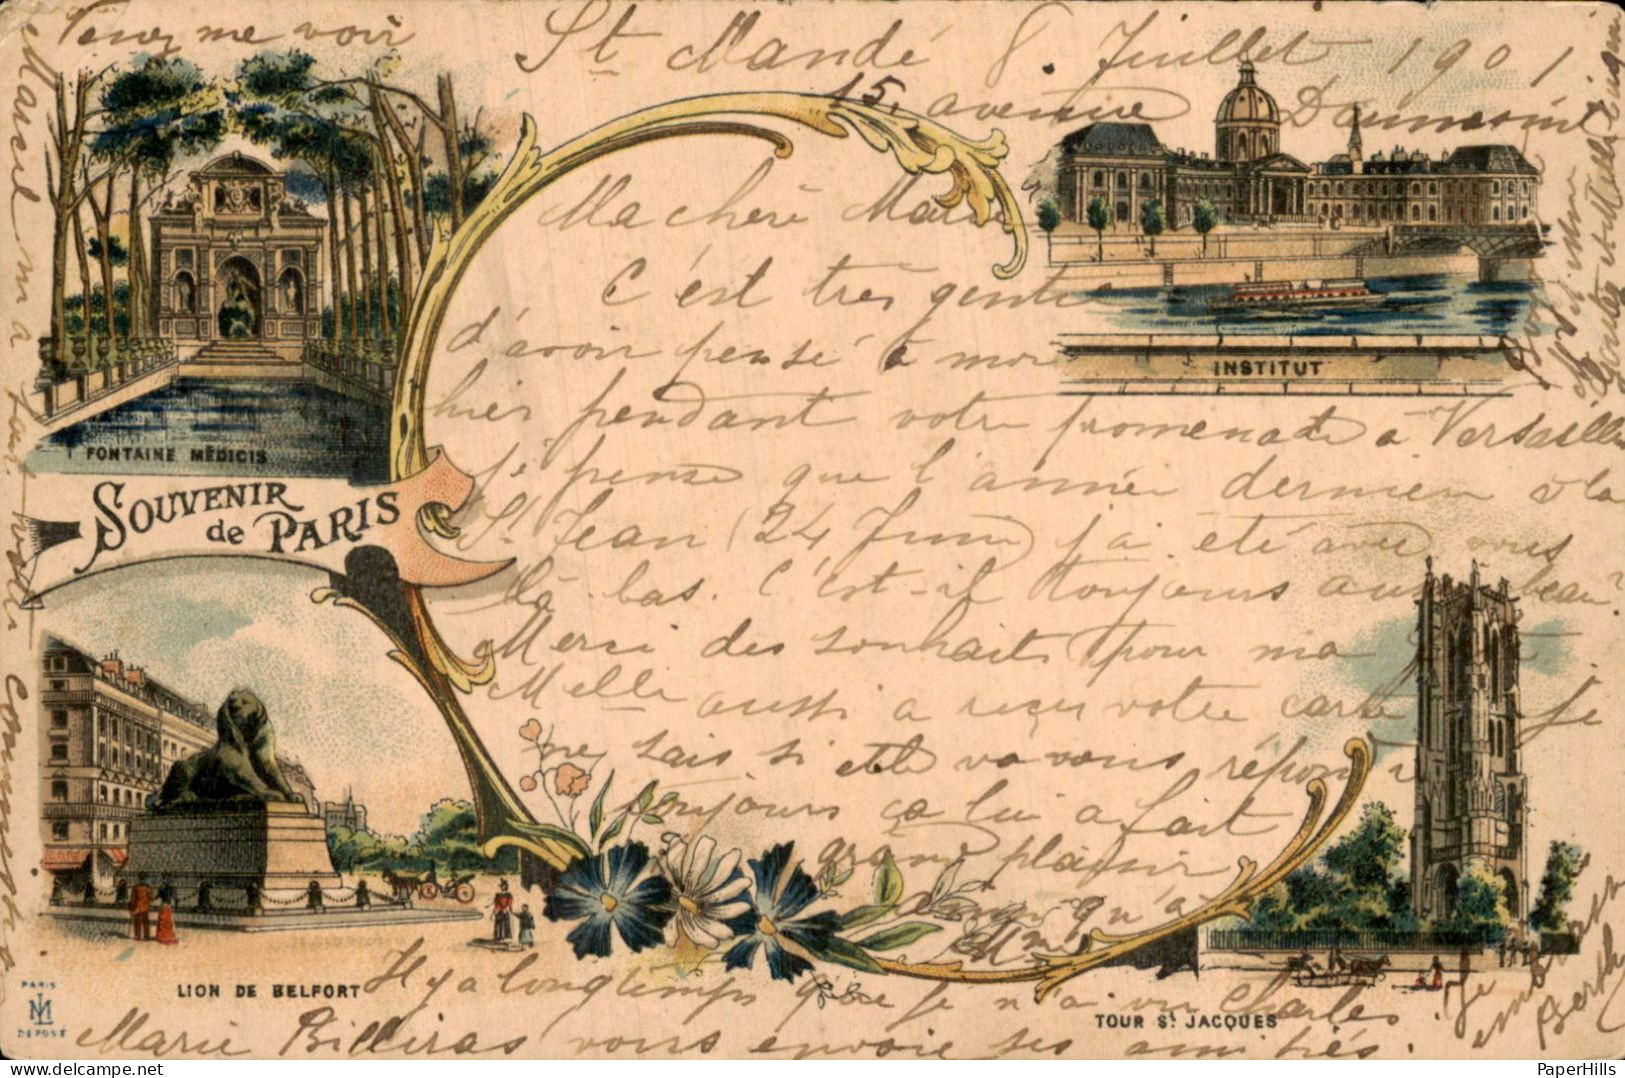 Venez me voir
St Mandé 8. Juillet 1901
15, avenue Daumesnil
Ma chère Marie
C'est très gentil
d'avoir pensé à moi
hier pendant votre promenade à Versailles
je pense que l'année dernière à la
St Jean (24 Juin) j'ai été avec vous
là-bas. C'est-il toujours aussi beau?
Merci des souhaits pour ma fête
Melle aussi a reçu votre carte je
ne sais si elle va vous répondre
toujours ça lui a fait
grand plaisir
ainsi qu'à
Mme
Il y a longtemps que je n'ai vu Charles.
Marie Billiras vous envoie ses amitiés.
Je
embrasse
Berthe
Marcel m'a fait votre commission
FONTAINE MÉDICIS
INSTITUT
SOUVENIR
de PARIS
LION DE BELFORT
TOUR St JACQUES
PARIS
LM
DEPOSÉ
PaperHills